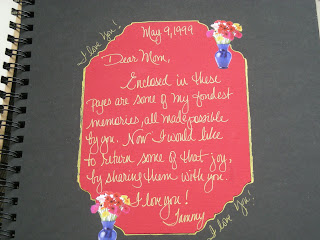 I love You!
May 9, 1999
Dear Mom,
Enclosed in these
pages are some of my fondest
memories, all made possible
by you. Now I would like
to return some of that joy,
by sharing them with you.
I love you!
Tammy
I love You!